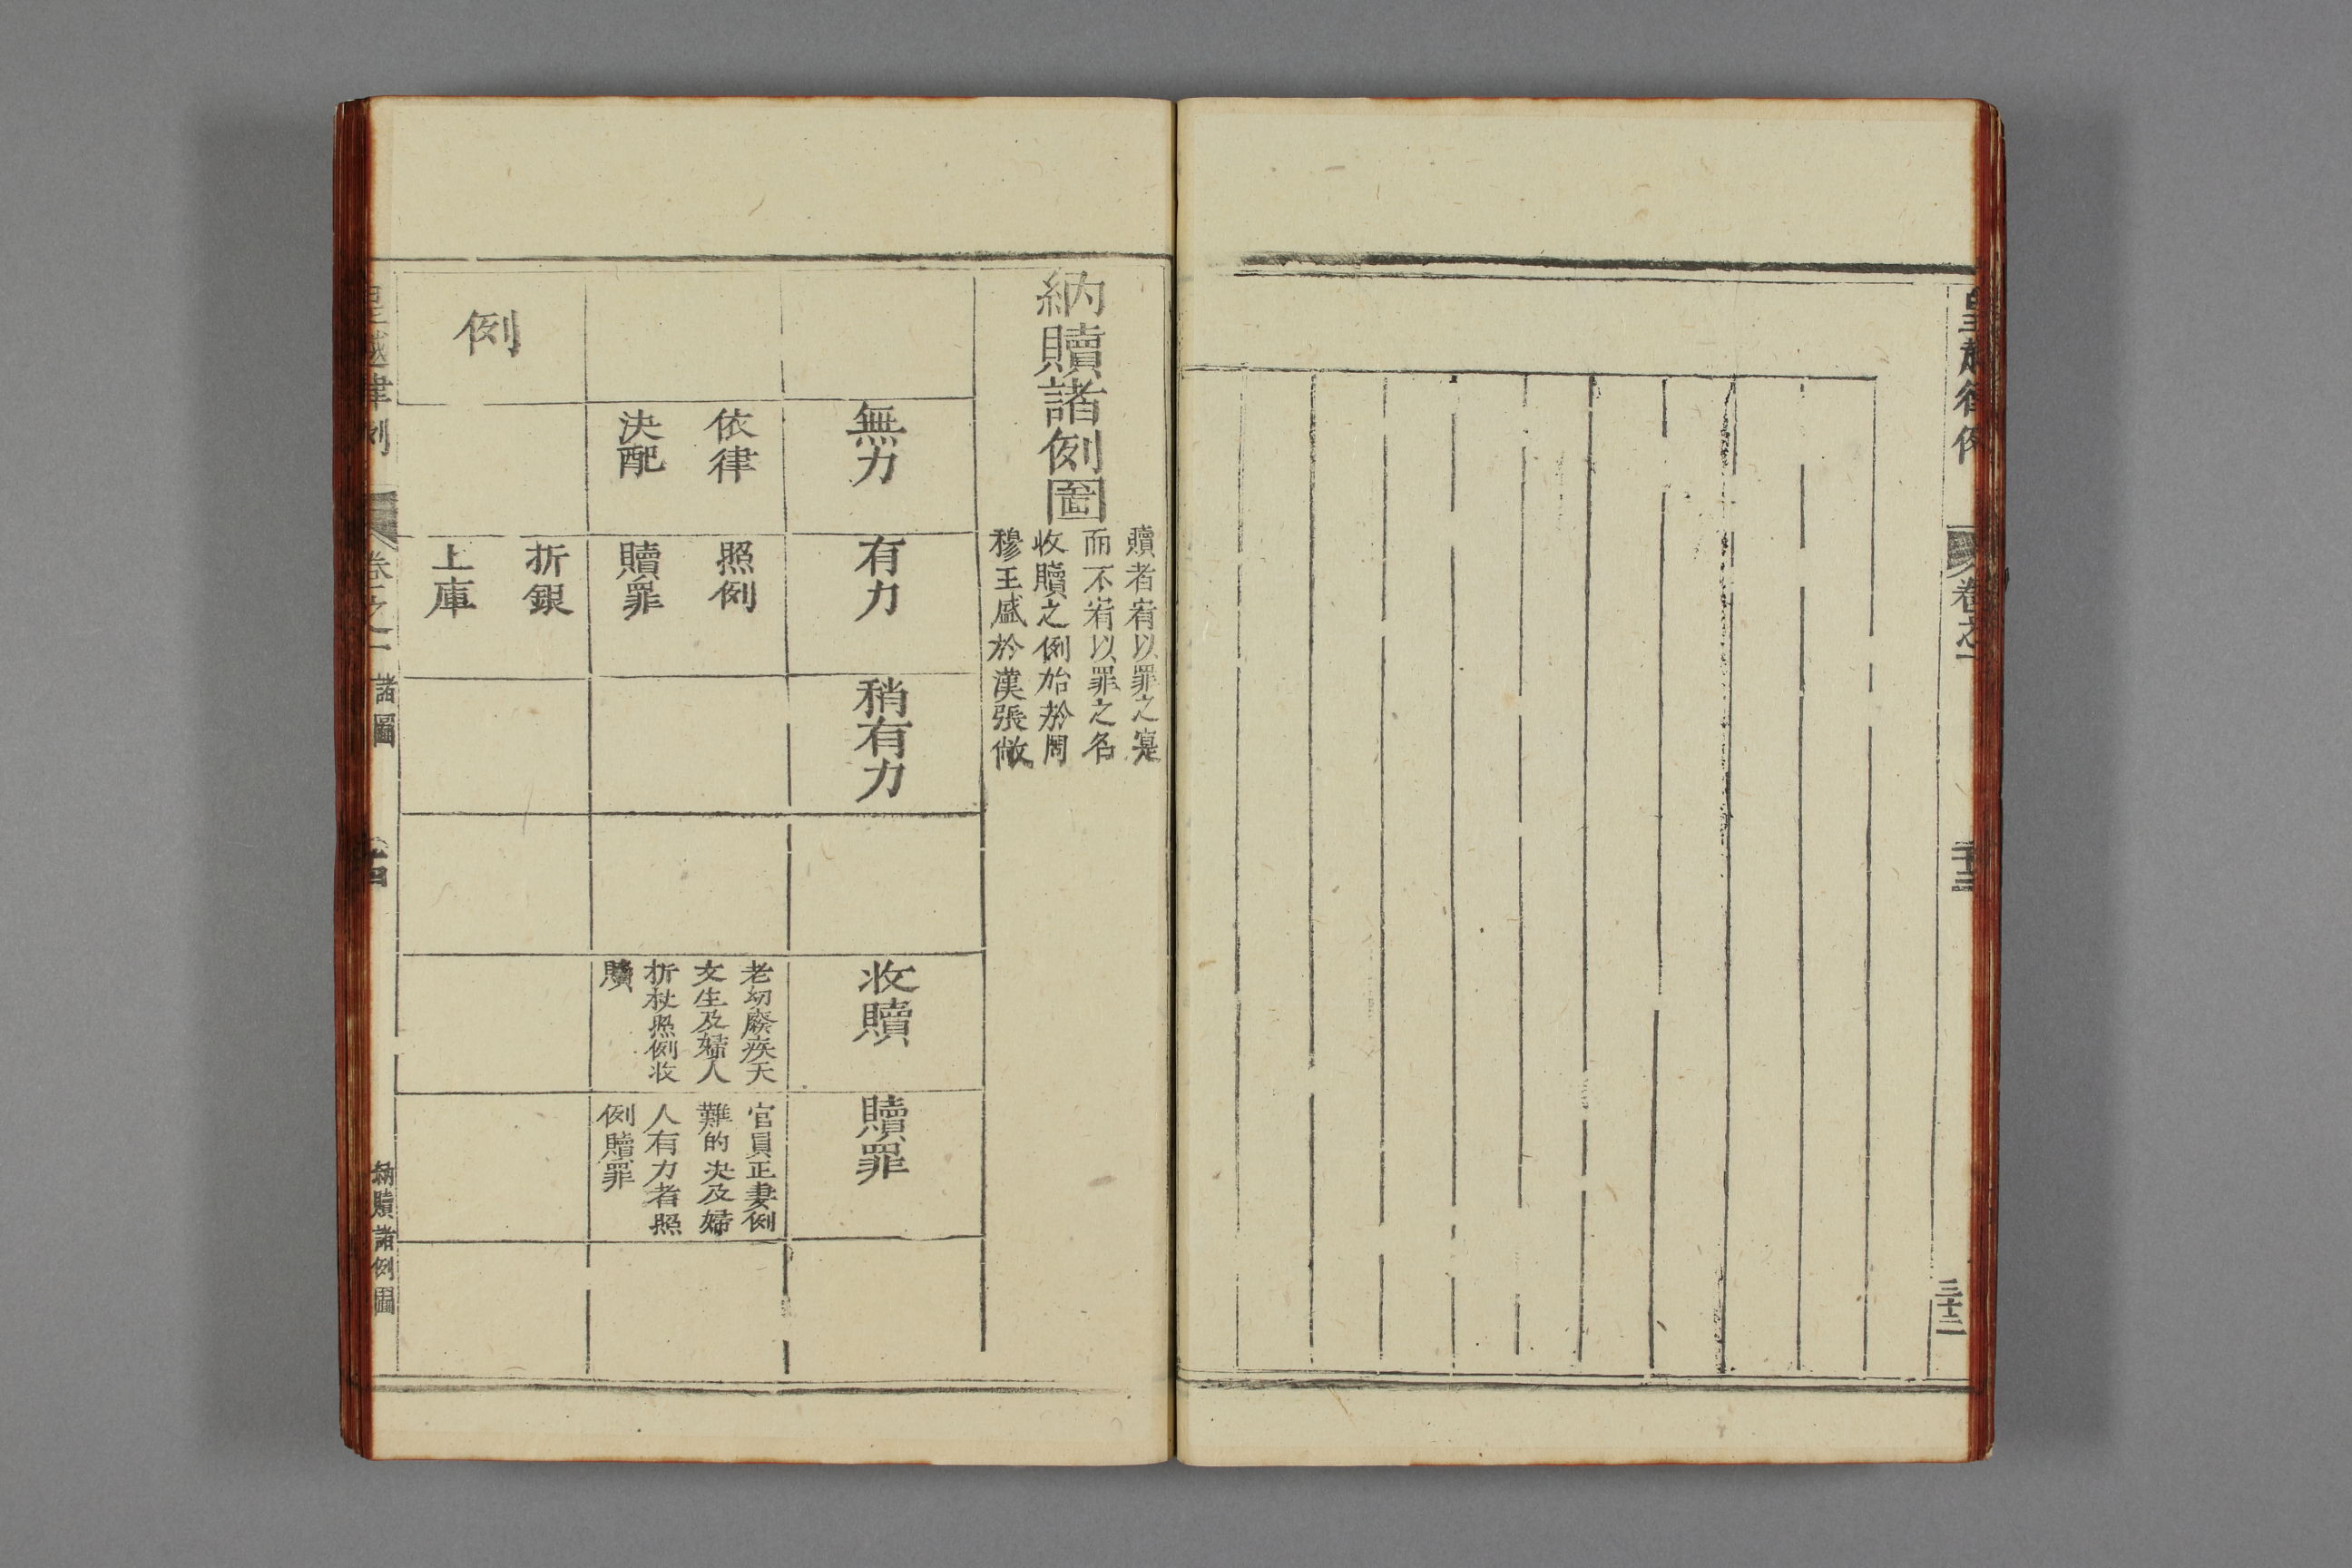 皇越律例
卷之一
三十二
納贖諸例圖
贖者宥以罪之寔
而不宥以罪之名
收贖之例始於周
穆王盛於漢張敞
無力
有力
稍有力
收贖
贖罪
依律
決配
照例
贖罪
老幼廢疾天
文生及婦人
折杖照例收
贖
官員正妻例
難的決及婦
人有力者照
例贖罪
例
折銀
上庫
皇越律例
卷之一
諸圖
納贖諸例圖